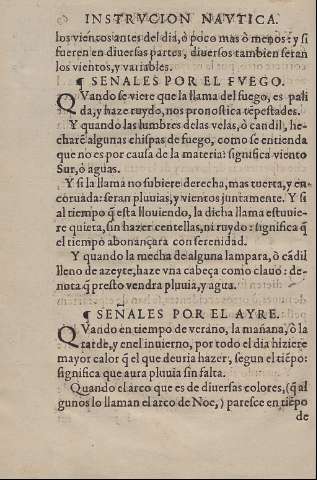 INSTRVCION NAVTICA.
los vientos antes del dia, ò poco mas ò menos: y si
fueren en diuersas partes, diuersos tambien seran
los vientos, y variables.
¶ SENALES POR EL FVEGO.
QVando se viete que la llama del fuego, es pali
da, y haze ruydo, nos pronostica tẽpestades.
Y quando las lumbres delas velas, ò candil, he-
charẽ algunas chispas de fuego, como se entienda
que no es por causa de la materia: significa viento
Sur, ò aguas.
Y si la llama no subiere derecha, mas tuerta, y en-
coruada: seran pluuias, y vientos juntamente. Y si
al tiempo q̃ esta llouiendo, la dicha llama estuuie-
re quieta, sin hazer centellas, ni ruydo: significa q̃
el tiempo abonançara con serenidad.
Y quando la mecha de alguna lampara, ò cãdil
lleno de azeyte, haze vna cabeça como clauo: de-
nota q̃ presto vendra pluuia, y agua.
¶ SENALES POR EL AYRE.
QVando en tiempo de verano, la mañana, ò la
tarde, y enel inuierno, por todo el dia hiziere
mayor calor q̃ el que deuria hazer, segun el tiẽpo:
significa que aura pluuia sin falta.
Quando el arco que es de diuersas colores, (q̃ al
gunos lo llaman el arco de Noe,) paresce en tiẽpo
de